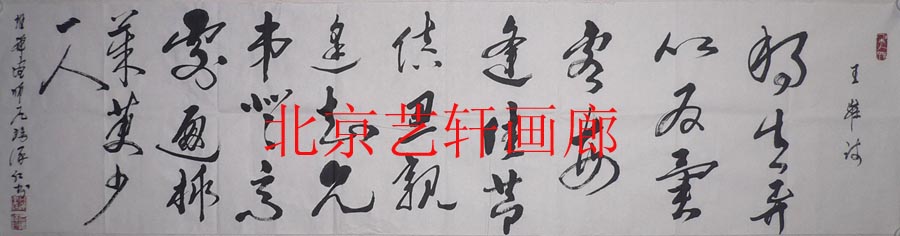 王维诗
独在异
乡为異
客每
逢佳节
倍思親
遥知兄
弟登高
處遍插
茱萸少
一人
北京艺轩画廊